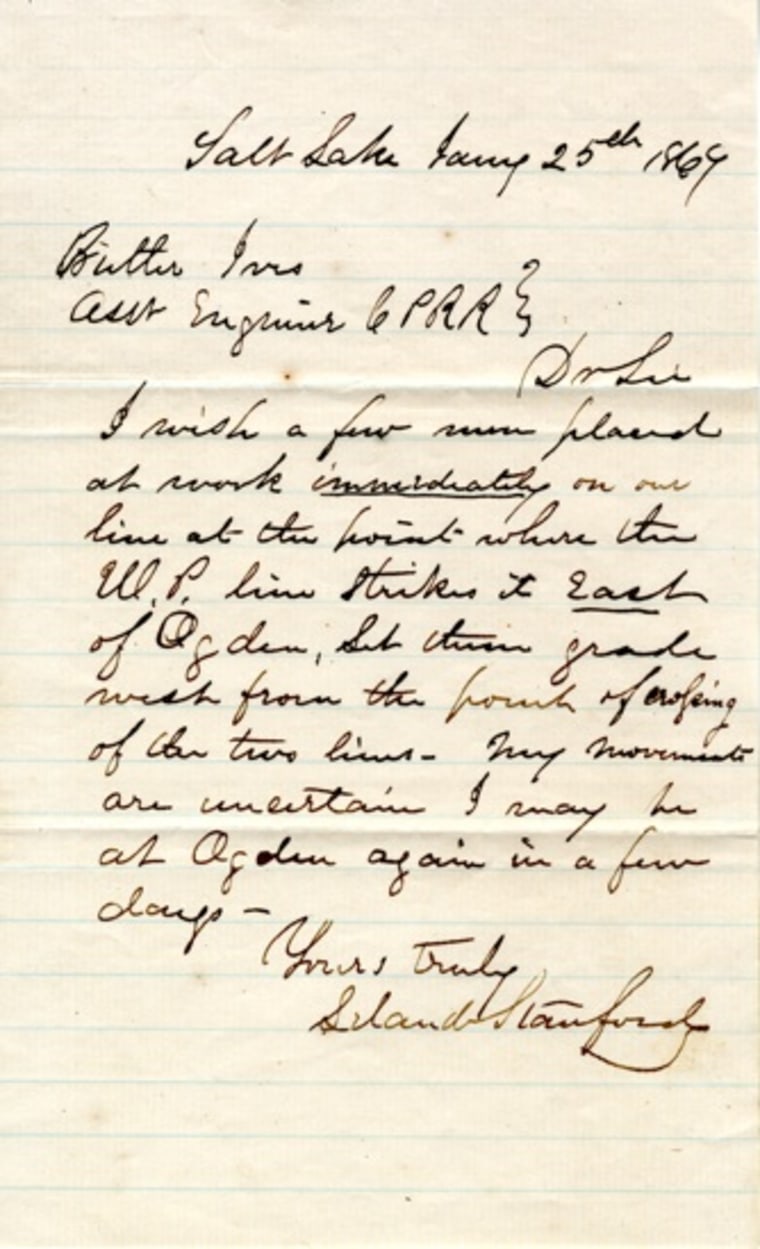 Salt Lake Jany 25th 1869
Butler Ives
Asst Engineer C P R R }
Dr Sir
I wish a few men placed
at work immediately on our
line at the point where the
U. P. line strikes it East
of Ogden, Let them grade
west from the point of crossing
of the two lines - My movements
are uncertain I may be
at Ogden again in a few
days -
Yours truly
Leland Stanford